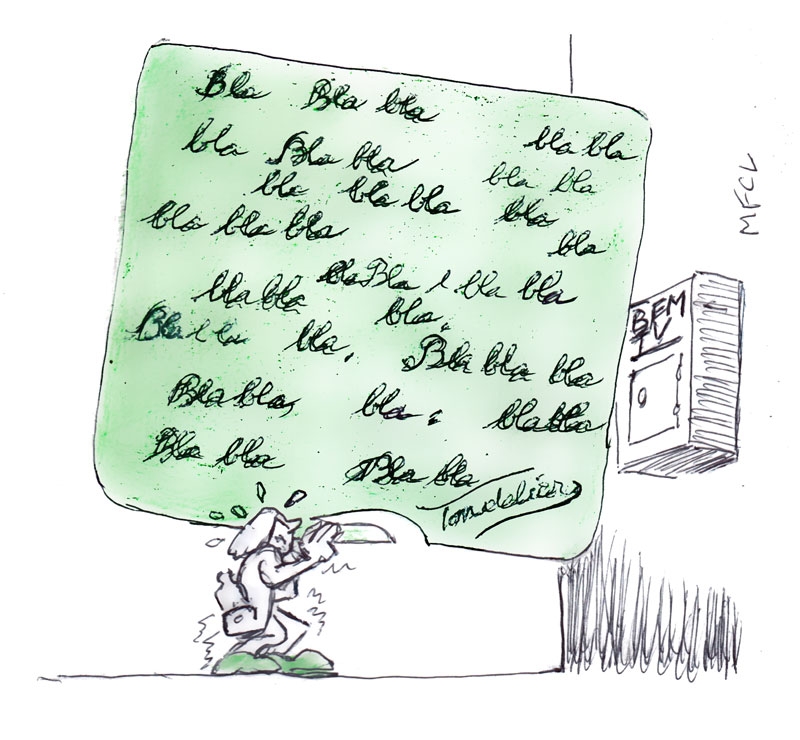 Bla Bla bla
bla bla
bla Bla bla
bla bla
bla bla bla
bla
bla bla bla
bla
bla Bla bla bla
bla bla
bla,
Bla
bla,
Bla bla bla
Bla bla
bla,
bla bla
Bla bla
Bla bla
BFM
TV
MFCL